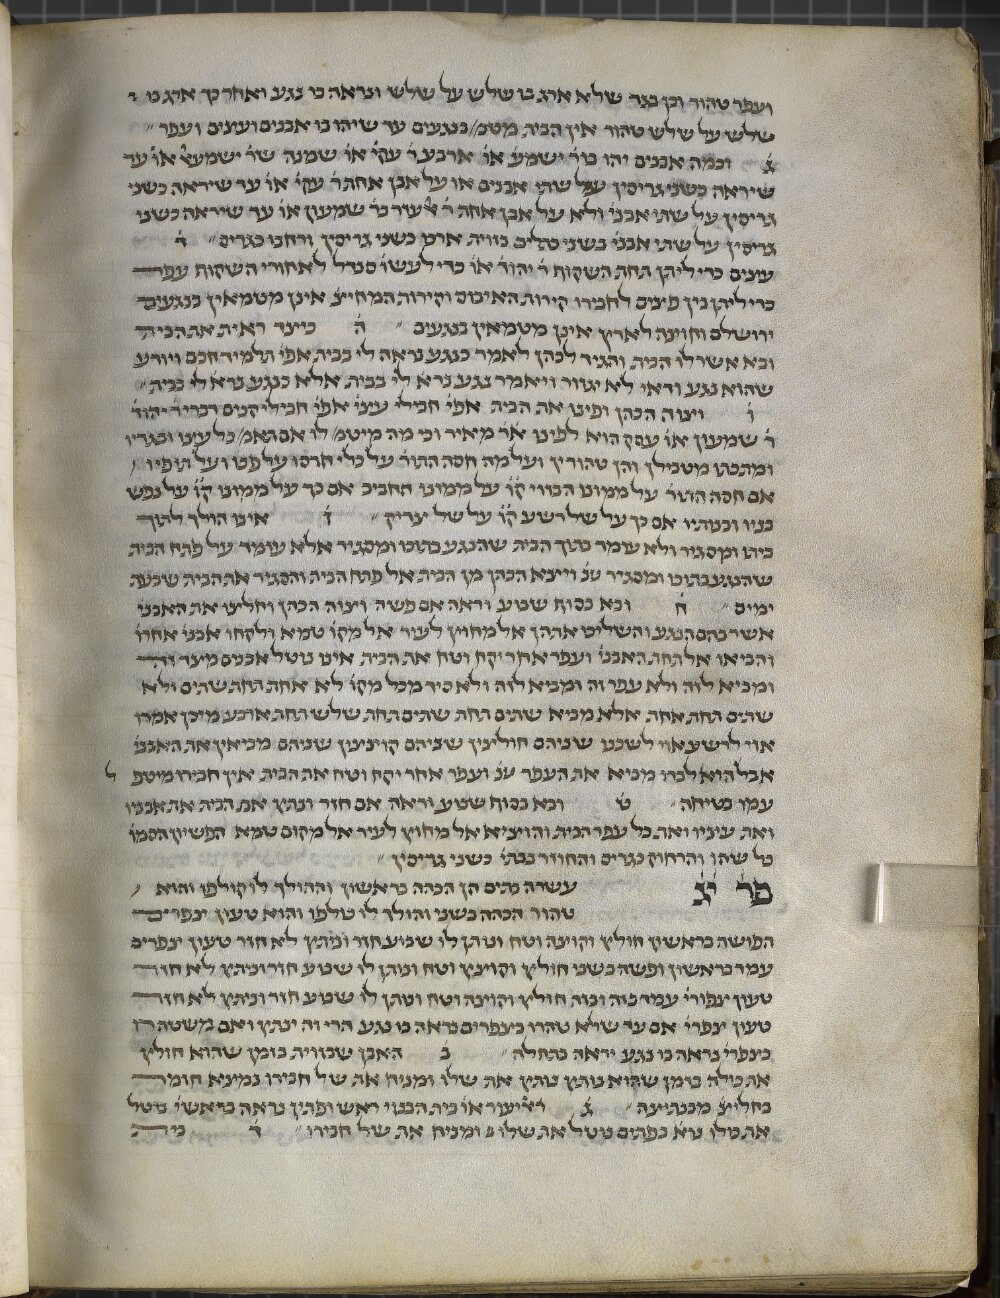 ועפר טהור וכן בגד שלא ארג בו שלש על שלש ונראה בו נגע ואחר כך ארג בו
שלש על שלש טהור אין הבית מטמ׳ בנגעים עד שיהו בו אבנים ועצים ועפר
ג וכמה אבנים יהו בו ר׳ ישמע׳ או׳ ארבע ר׳ עקי׳ או׳ שמנה שר׳ ישמעא׳ או׳ עד
שיראה כשני גריסין על שתי אבנים או על אבן אחת ר׳ עקי׳ או׳ עד שיראה כשני
גריסין על שתי אבני׳ ולא על אבן אחת ר׳ אלעזר בר׳ שמעון או׳ עד שיראה כשני
גריסין על שתי אבני׳ בשני כתלים בזוית ארכו כשני גריסין ורחבו כגריס ד
עצים כדי ליתן תחת השקוף ר׳ יהוד׳ או׳ כדי לעשו׳ סנדל לאחורי השקוף עפר
כדי ליתן בין פצים לחבירו קירות האיבוס וקירות המחיצ׳ אינן מטמאין בנגעים
ירושלם וחוצה לארץ אינן מטמאין בנגעים ה כיצד ראית את הבית
ובא אשר לו הבית והגיד לכהן לאמר כנגע נראה לי בבית אפי׳ תלמיד חכם ויודע
שהוא נגע ודאי לא יגזור ויאמר נגע נרא׳ לי בבית אלא כנגע נרא׳ לי בבית
ו ויצוה הכהן ופינו את הבית אפי׳ חבילי עצי׳ אפי׳ חבילי קנים דברי ר׳ יהוד׳
ר׳ שמעון או׳ עסק הוא לפינוי א׳ר׳ מאיר וכי מה מיטמ׳ לו אם תאמ׳ כלי עציו ובגדיו
ומתכתו מטבילן והן טהורין ועל מה חסה התור׳ על כלי חרסו על פכו ועל טופיו
אם חסה התור׳ על ממונו הבזוי ק׳ו׳ על ממונו החביב אם כך על ממונו ק׳ו׳ על נפש
בניו ובנותיו אם כך על של רשע ק׳ו׳ על של צדיק ז אינו הולך לתוך
ביתו ומסגיר ולא עומד בתוך הבית שהנגע בתוכו ומסגיר אלא עומד על פתח הבית
שהנגע בתוכו ומסגיר שנ׳ ויצא הכהן מן הבית אל פתח הבית והסגיר את הבית שבעת
ימים ח ובא בסוף שבוע וראה אם פשה וצוה הכהן וחלצו את האבני׳
אשר בהם הנגע והשליכו אתהן אל מחוץ לעיר אל מקו׳ טמא ולקחו אבני׳ אחרו׳
והביאו אל תחת האבני׳ ועפר אחר יקח וטח את הבית אינו נוטל אבנים מיצד זה
ומביא לזה ולא עפר זה ומביא לזה ולא סיד מכל מקו׳ לא אחת תחת שתים ולא
שתים תחת אחת אלא מביא שתים תחת שתים תחת שלש תחת ארבע מיכן אמרו
אוי לרשע אוי לשכנו שניהם חולצין שניהם קוצעין שניהם מביאין את האבני׳
אבל הוא לבדו מביא את העפר שנ׳ ועפר אחר יקח וטח את הבית אין חבירו מיטפל
עמו בטיחה ט ובא בסוף שבוע וראה אם חזר ונתץ את הבית את אבניו
ואת עציו ואת כל עפר הבית והוציא אל מחוץ לעיר אל מקום טמא הפשיון הסמו׳
כל שהו והרחוק כגריס והחוזר בבתי׳ כשני גריסין
פר׳ יג עשרה בתים הן הכהה בראשון וההולך לו קולפו והוא
טהור הכהה בשני והולך לו קולפו והוא טעון צפרים
הפושה בראשון חולץ וקוצה וטח ונותן לו שבוע חזר ונתץ לא חזר טעון צפרים
עמד בראשון ופשה בשני חולץ וקוצץ וטח ונותן לו שבוע חזר ונתץ לא חזר
טעון צפורי׳ עמד בזה ובזה חולץ וקוצה וטח ונותן לו שבוע חזר ונתץ לא חזר
טעון צפרי׳ אם עד שלא טהרו בצפרים נראה בו נגע הרי זה ינתץ ואם משטהרו
בצפרי׳ נראה בו נגע יראה בתחלה ב האבן שבזוית בזמן שהוא חולץ
את כולה בזמן שהוא נותץ נותץ את שלו ומניח את של חבירו נמצא חומר
בחליצ׳ מבנתיצה ג ר׳ אלעזר או׳ בית הבנוי ראש ופתין נראה בראש׳ נוטל
את כולו נרא׳ בפתים נוטל את שלו ומניח את של חבירו ד בית